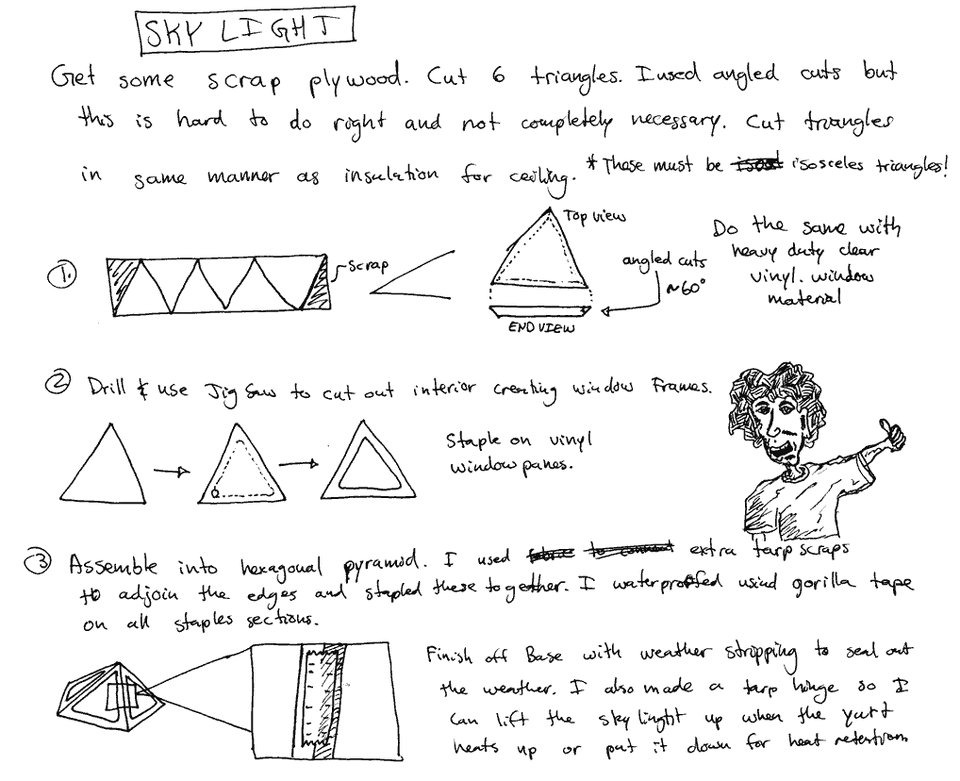 SKY LIGHT
Get some scrap plywood. Cut 6 triangles. I used angled cuts but
this is hard to do right and not completely necessary. Cut triangles
in same manner as insulation for ceiling. * These must be isosceles triangles!
Top view
Do the same with
heavy duty clear
vinyl. window
material
angled cuts
~60°
1.
scrap
END VIEW
2 Drill & use Jig Saw to cut out interior creating window frames.
Staple on vinyl
window panes.
3 Assemble into hexagonal pyramid. I used extra tarp scraps
to adjoin the edges and stapled these together. I waterproofed using gorilla tape
on all staples sections.
Finish off Base with weather stripping to seal out
the weather. I also made a tarp hinge so I
can lift the sky linght up when the yurt
heats up or put it down for heat retention.